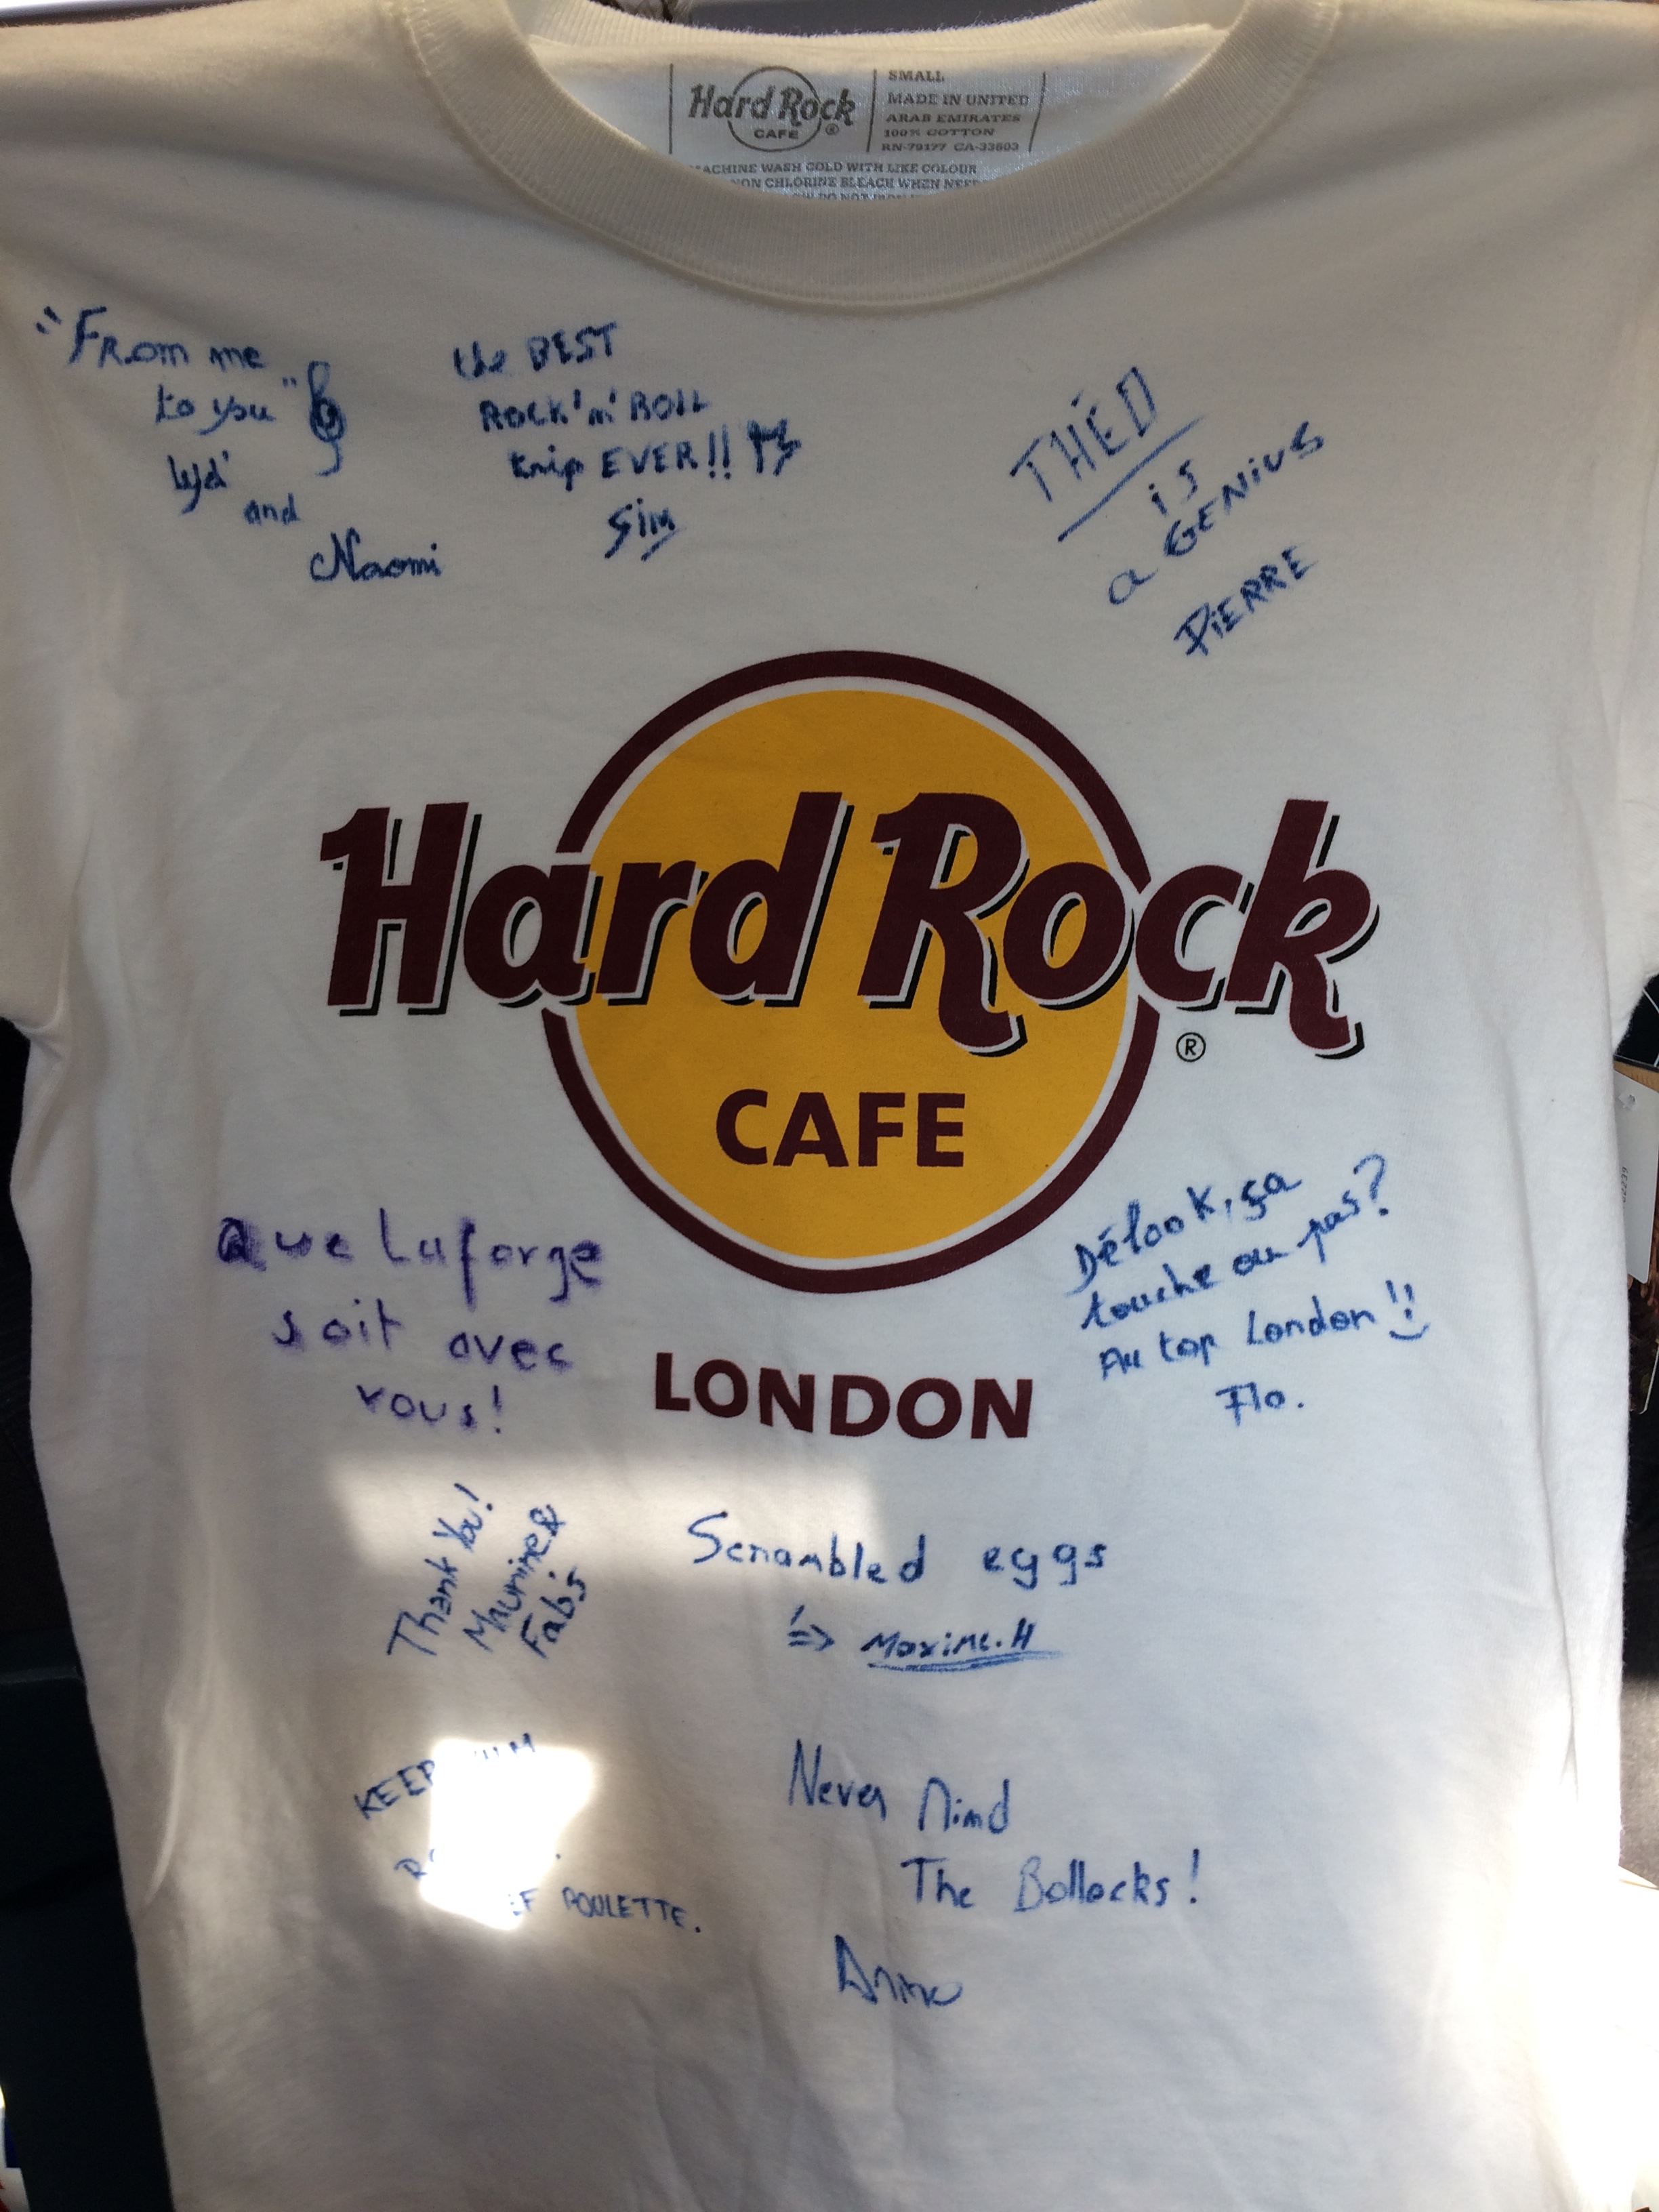 Hard Rock
CAFE ®
SMALL
MADE IN UNITED
ARAB EMIRATES
100% COTTON
RN-79177 CA-33803
MACHINE WASH COLD WITH LIKE COLOUR
NON CHLORINE BLEACH WHEN
DO NOT IRON
"From me
to you"
Lyd'
and
Naomi
the BEST
ROCK'n'ROLL
trip EVER!!
Sim
THÉO
is
a GENiUS
PiERRE
Hard Rock
®
CAFE
LONDON
Que Laforge
soit avec
vous!
Délook, ça
touche ou pas?
Au top London!!
Flo.
Thank You!
Maurine &
Fabs
Scrambled eggs
=> Maxime.H
KEEP
POULETTE.
Never Mind
The Bollocks!